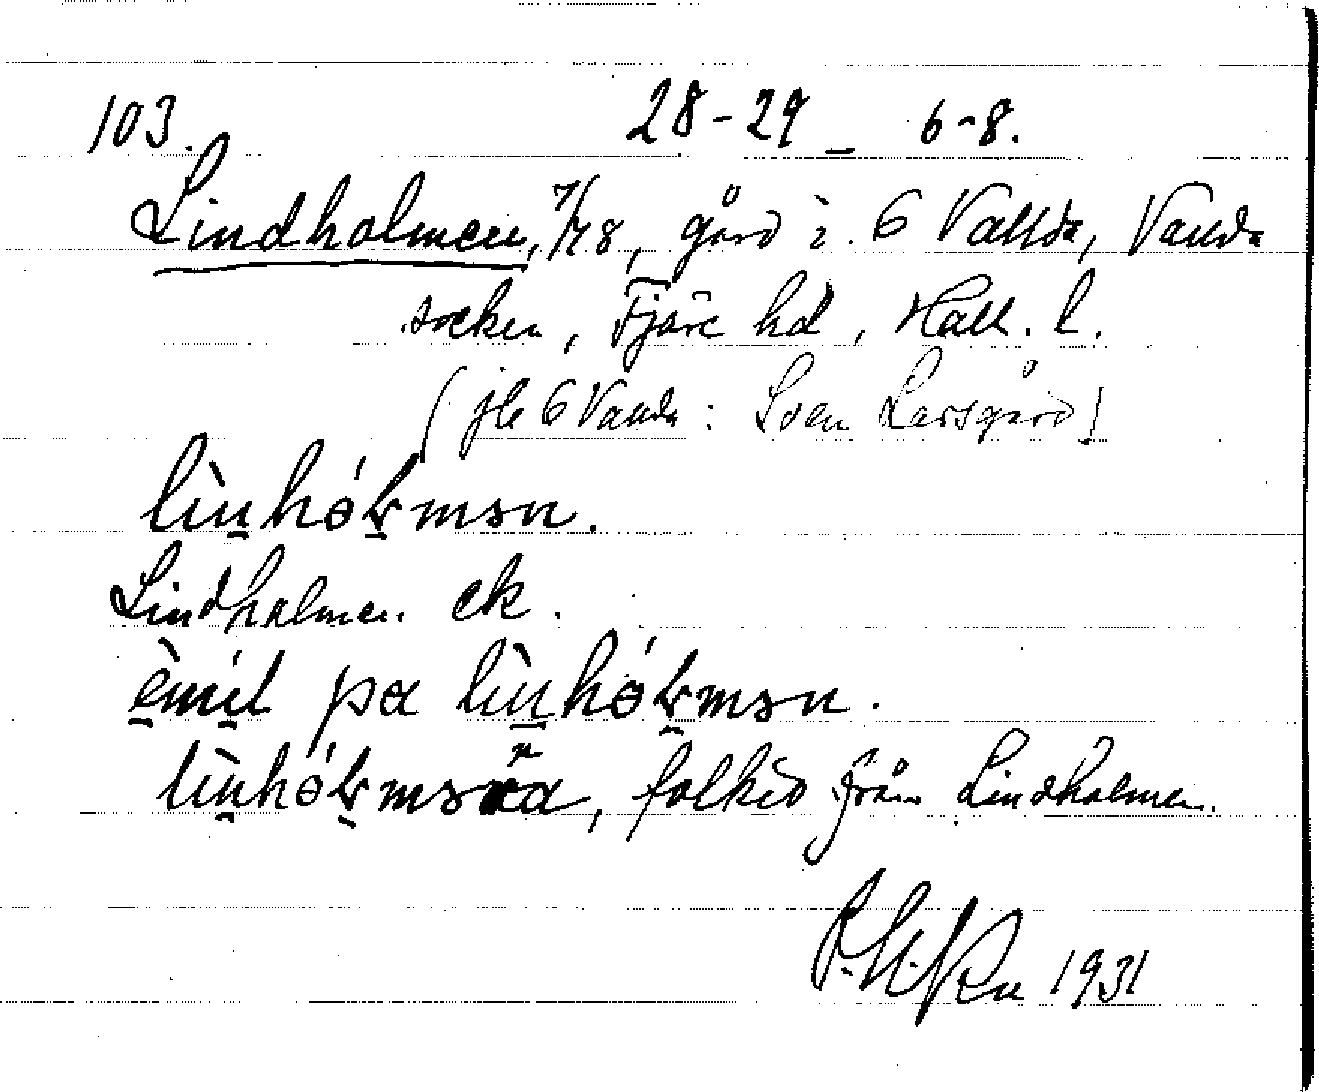 103. 28-29 – 6-8.
Lindholmen, 7/48, gård i. 6 Vallda, Vallda
socken, Fjäre hd, Hall. l.
(jfr 6 Vallda: Sven Larsgård)
lìn̠hóɫmən.
Lindholmen ek.
èmil pa lìn̠hóɫmən.
lìn̠hóɫməna, folket från Lindholmen.
1931